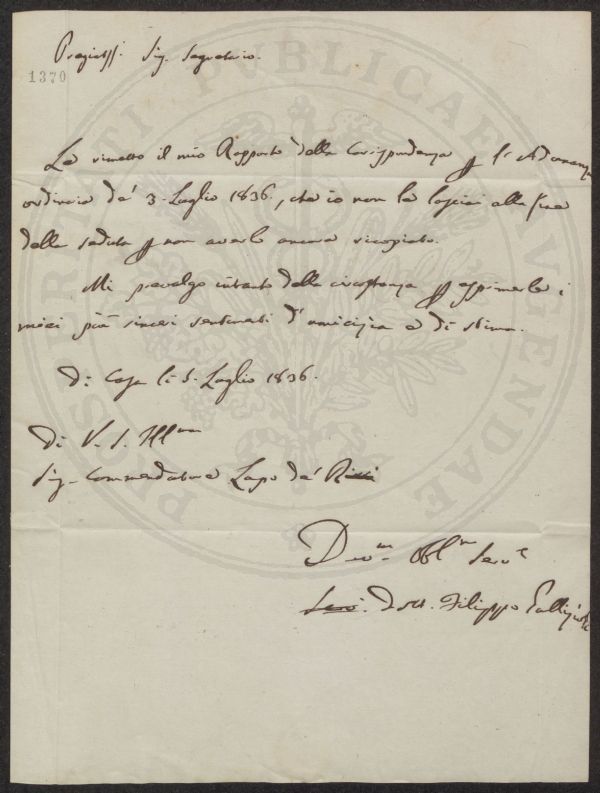 Pregiatss. Sig. Segretario.
1370
Le rimetto il mio Rapporto della Corrispondenza p l'Adunanza
ordinaria de' 3. Luglio 1836., che io non le lasciai alla fine
della seduta p non averlo ancora ricopiato.
Mi prevalgo intanto della circostanza p esprimerle i
miei più sinceri sentimenti d'amicizia e di stima.
Di Casa li 5. Luglio 1836.
Di V. S. Illma
Sig. Commendatore Lapo de' Ricci
Devm. Obblm Serve
Dott. Filippo Gallizioli
PROSPERITATI PUBLICAE AUGENDAE